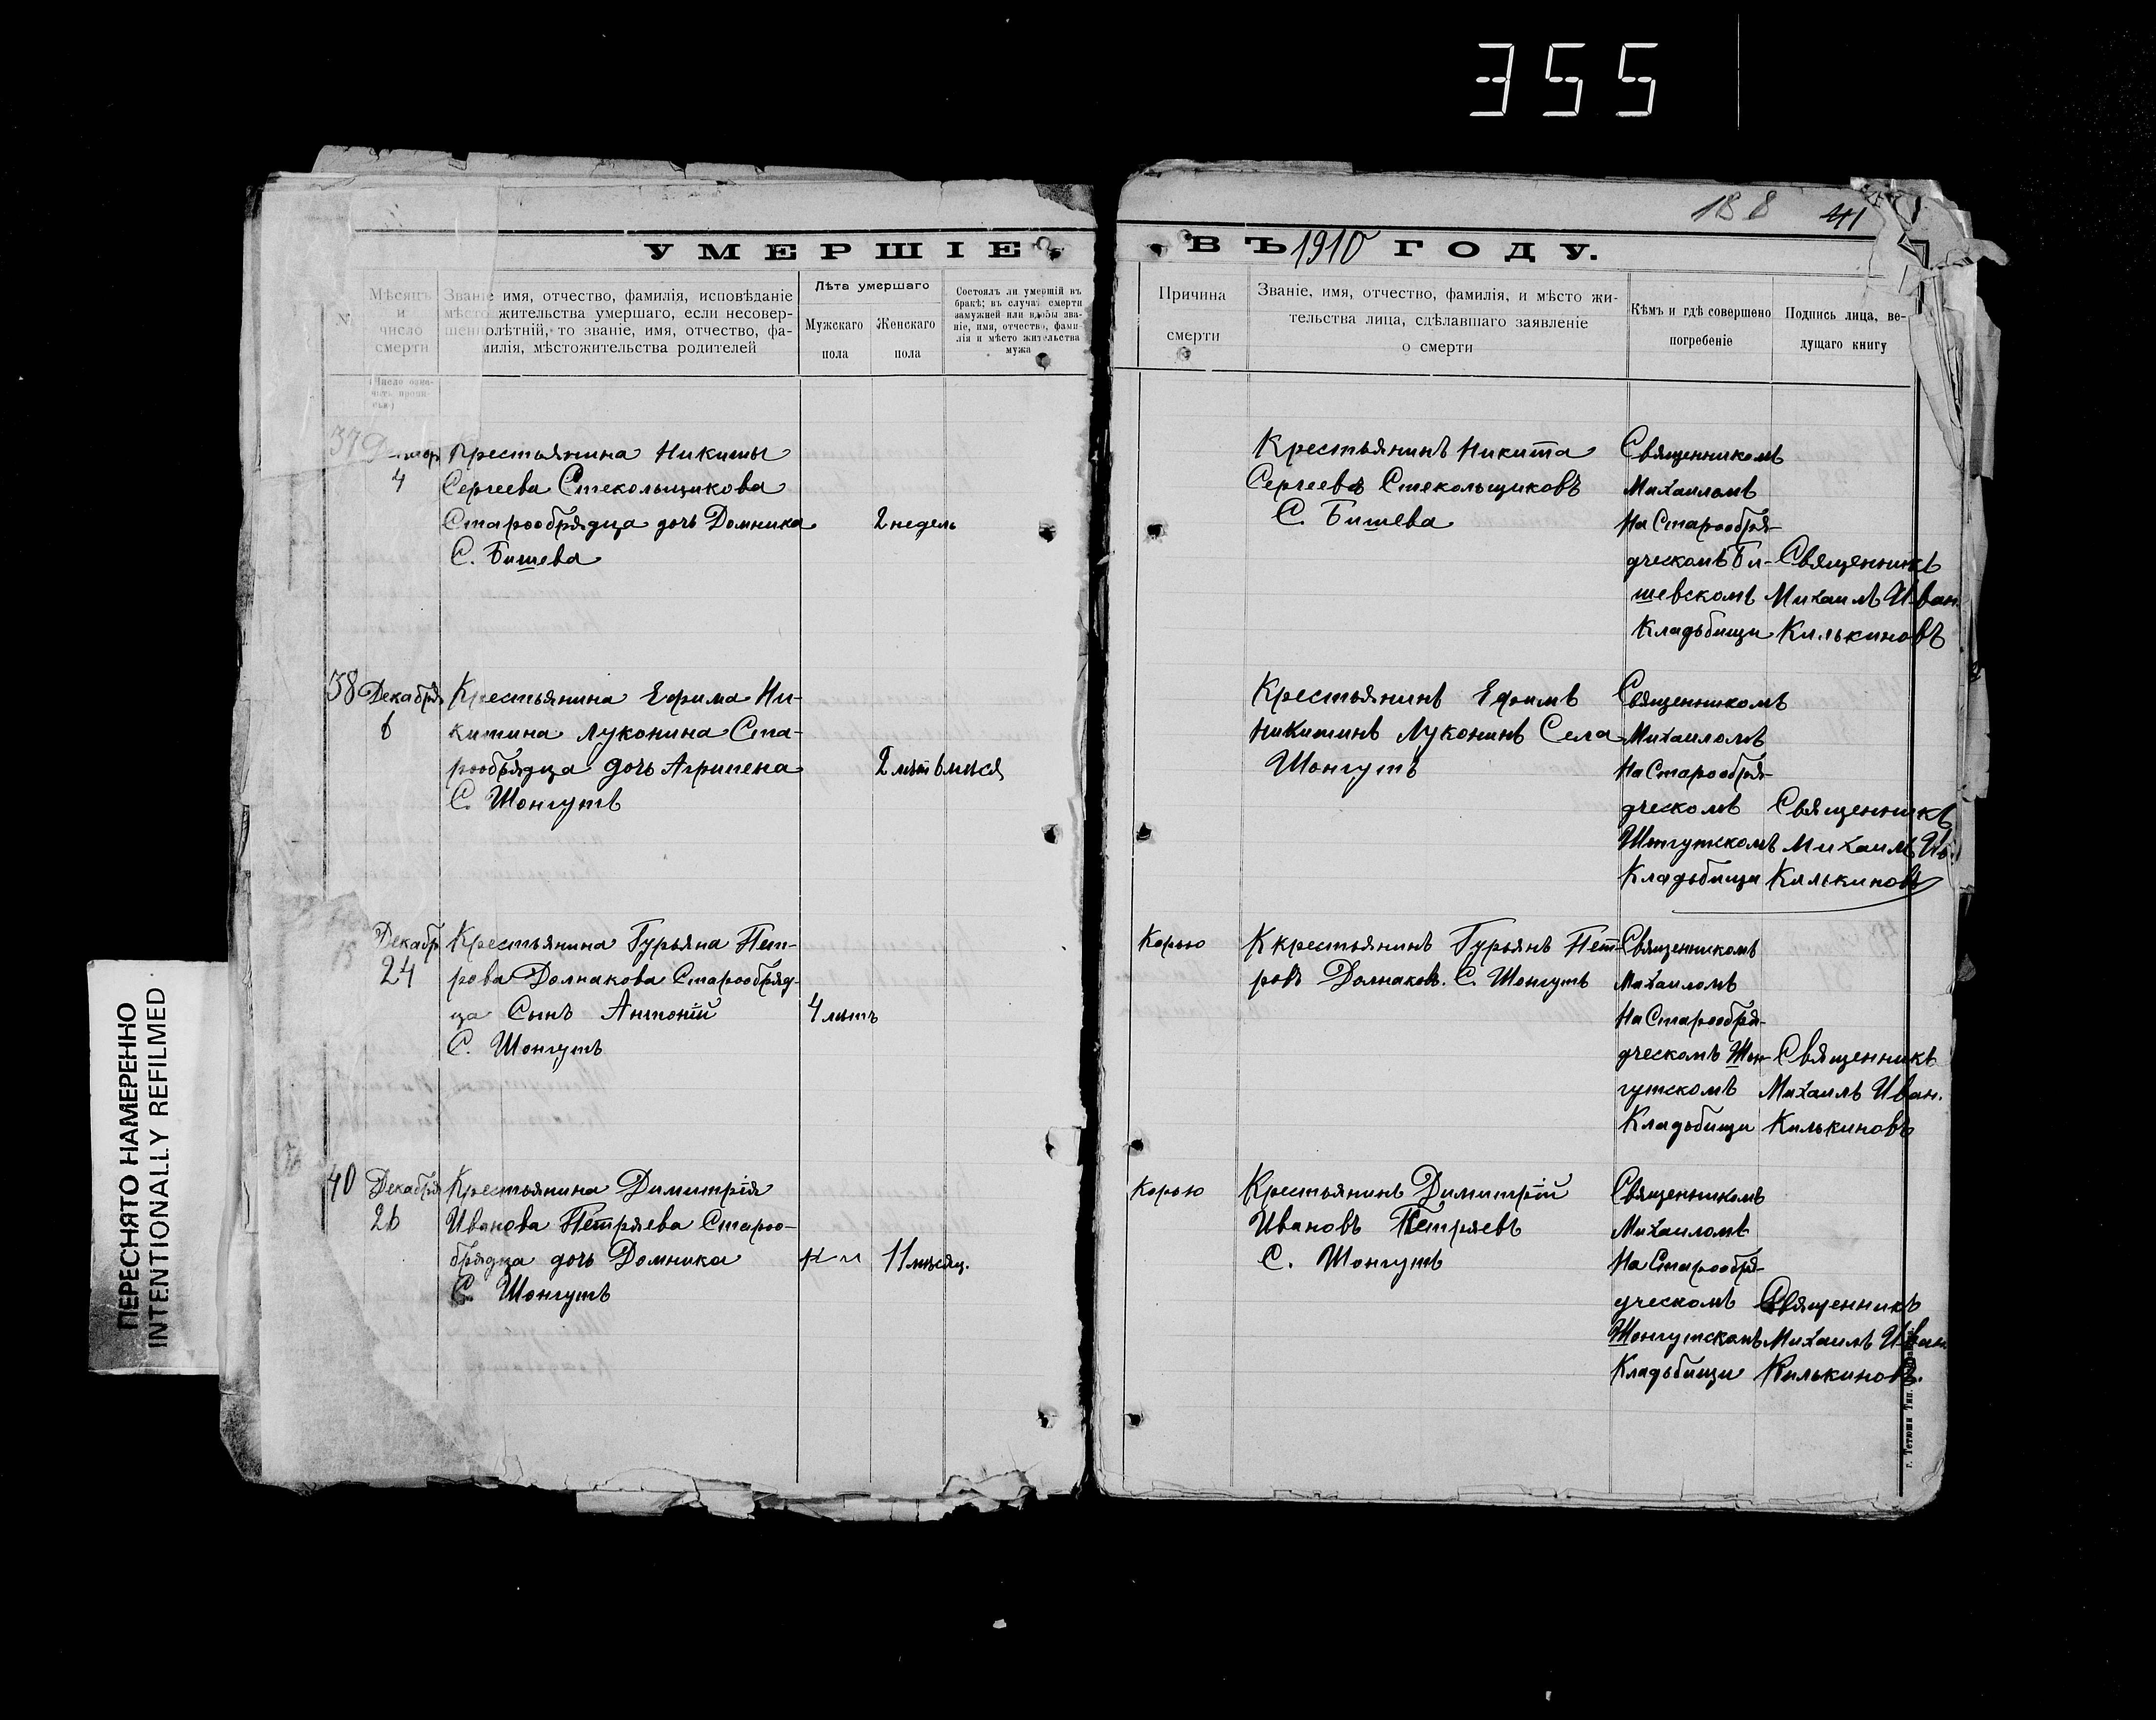 355
188 41
УМЕРШІЕ ВЪ 1910 ГОДУ.
№
Мѣсяцъ и число смерти
(Число озна-
чить пропи-
сью)
Званіе имя, отчество, фамилія, исповѣданіе
мѣсто жительства умершаго, если несовер-
шеннолѣтній, то званіе, имя, отчество, фа-
милія, мѣстожительства родителей
Лѣта умершаго
Мужскаго пола
Женскаго пола
Состоялъ ли умершій въ
бракѣ; въ случаѣ смерти
замужней или вдовы зва-
ніе, имя, отчество, фами-
лія и мѣсто жительства
мужа
Причина смерти
Званіе, имя, отчество, фамилія, и мѣсто жи-
тельства лица, сдѣлавшаго заявленіе
о смерти
Кѣмъ и гдѣ совершено
погребеніе
Подпись лица, ве-
дущаго книгу
37
4
Крестьянина Никиты
Сергеева Стекольщикова
Старообрядца дочь Домника
С. Бишева
2 недель
Крестьянинъ Никита
Сергеевъ Стекольщиковъ
С. Бишева
Священникомъ
Михаиломъ
На Старообря-
дческомъ Би-
шевскомъ
Кладьбищи
Священникъ
Михаилъ Иван.
Килькиновъ
38 Декабря
6
Крестьянина Ефима Ни-
китина Луконина Ста-
рообрядца дочь Агрипена
С. Шонгутъ
2 лѣт 6 мѣся
Крестьянинъ Ефимъ
Никитинъ Луконинъ Села
Шонгутъ
Священникомъ
Михаиломъ
На Старообря-
дческомъ
Шонгутскомъ
Кладьбищи
Священникъ
Михаилъ Ив.
Килькиновъ
Декабр
24
Крестьянина Гурьяна Пет-
рова Долнакова Старообряд-
ца Сынъ Антоній
С. Шонгутъ
4 лѣтъ
Корью
Ккрестьянинъ Гурьянъ Пет-
ровъ Долнаковъ. С. Шонгутъ
Священникомъ
Михаиломъ
На Старообря-
дческомъ Шон-
гутскомъ
Кладьбищи
Священникъ
Михаилъ Иван.
Килькиновъ
40 Декабря
26
Крестьянина Димитрія
Иванова Петряева Староо-
брядца дочь Домника
С. Шонгутъ
11 мѣсяц.
Корью
Крестьянинъ Димитрій
Ивановъ Петряевъ
С. Шонгутъ
Священникомъ
Михаиломъ
На Старообря-
дческомъ
Шонгутскомъ
Кладьбищи
Священникъ
Михаилъ Иван
Килькиновъ.
г. Тетюши Тип.
ПЕРЕСНЯТО НАМЕРЕННО
INTENTIONALLY REFILMED